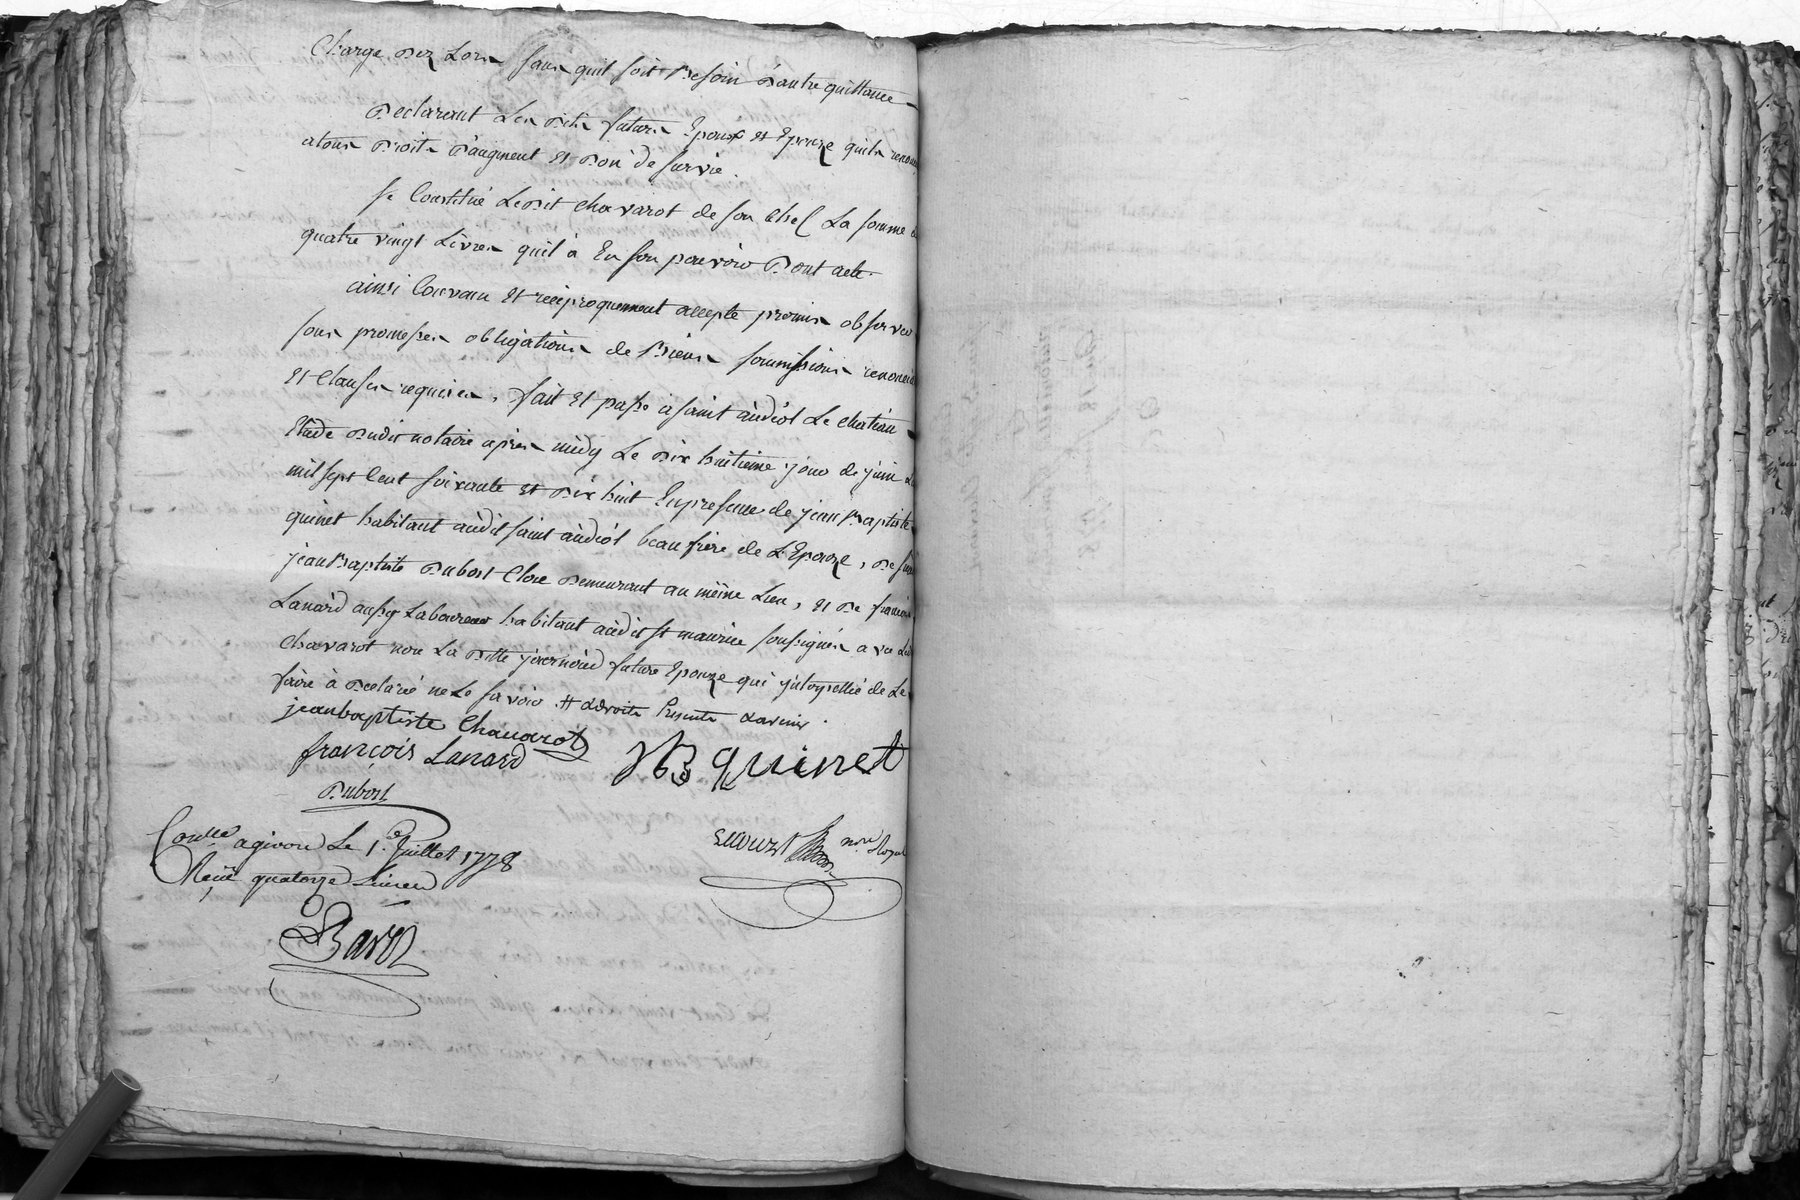 charge dez Lors sans quil soit Besoin dautre quittance
Declarant Les dits futurs Epoux et Epouze quils renon
atous droits d'augment et don de survie.
Se Constitue Ledit chavarot de son chef La somme de
quatre vingt Livres quil à En son pouvoir Dont acte.
ainsi Convenu et réciproquement accepté promis observer
sous promesses obligations de Biens soumissions renonciā
et clauses requises, fait et passé à saint andéol Le chateau
Etude dudit notaire apres midy Le dix huitieme jour de juin
mil sept Cent soixante et dix huit En presence de jean Baptiste
quinet habitant audit saint andéol beau frere de L'Epouze, de sieur
jean Baptiste Dubost Clerc Demeurant au même Lieu, et de françois
Lanard aussy Laboureur habitant audit st maurice soussignés avec Led
Chavarot non La ditte journoud future Epouze qui
faire à declaré ne Le savoir # adroits Presents davenir.
jeanbaptiste Chauarot
françois Lanard
JB quinet
Dubost
Conllé agivors Le 1.er Juillet 1778
Reçu quatorze Livres
nre Royal